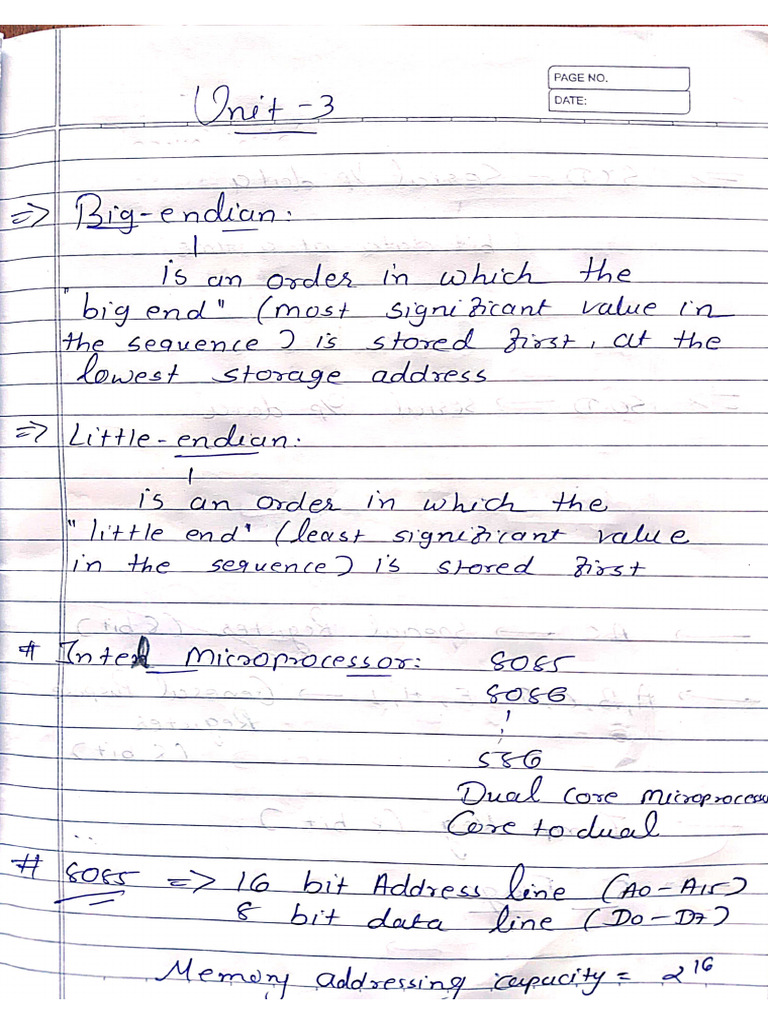 PAGE NO.
DATE:
Unit - 3
=> Big-endian:
is an order in which the
"big end" (most significant value in
the sequence) is stored first, at the
lowest storage address
=> Little-endian:
is an order in which the
"little end" (least significant value
in the sequence) is stored first
# Intel Microprocessor: 8085
8086
586
Dual core microprocess
Core to dual
# 8085 => 16 bit Address line (A0-A15)
8 bit data line (D0-D7)
Memory addressing capacity = 2^16